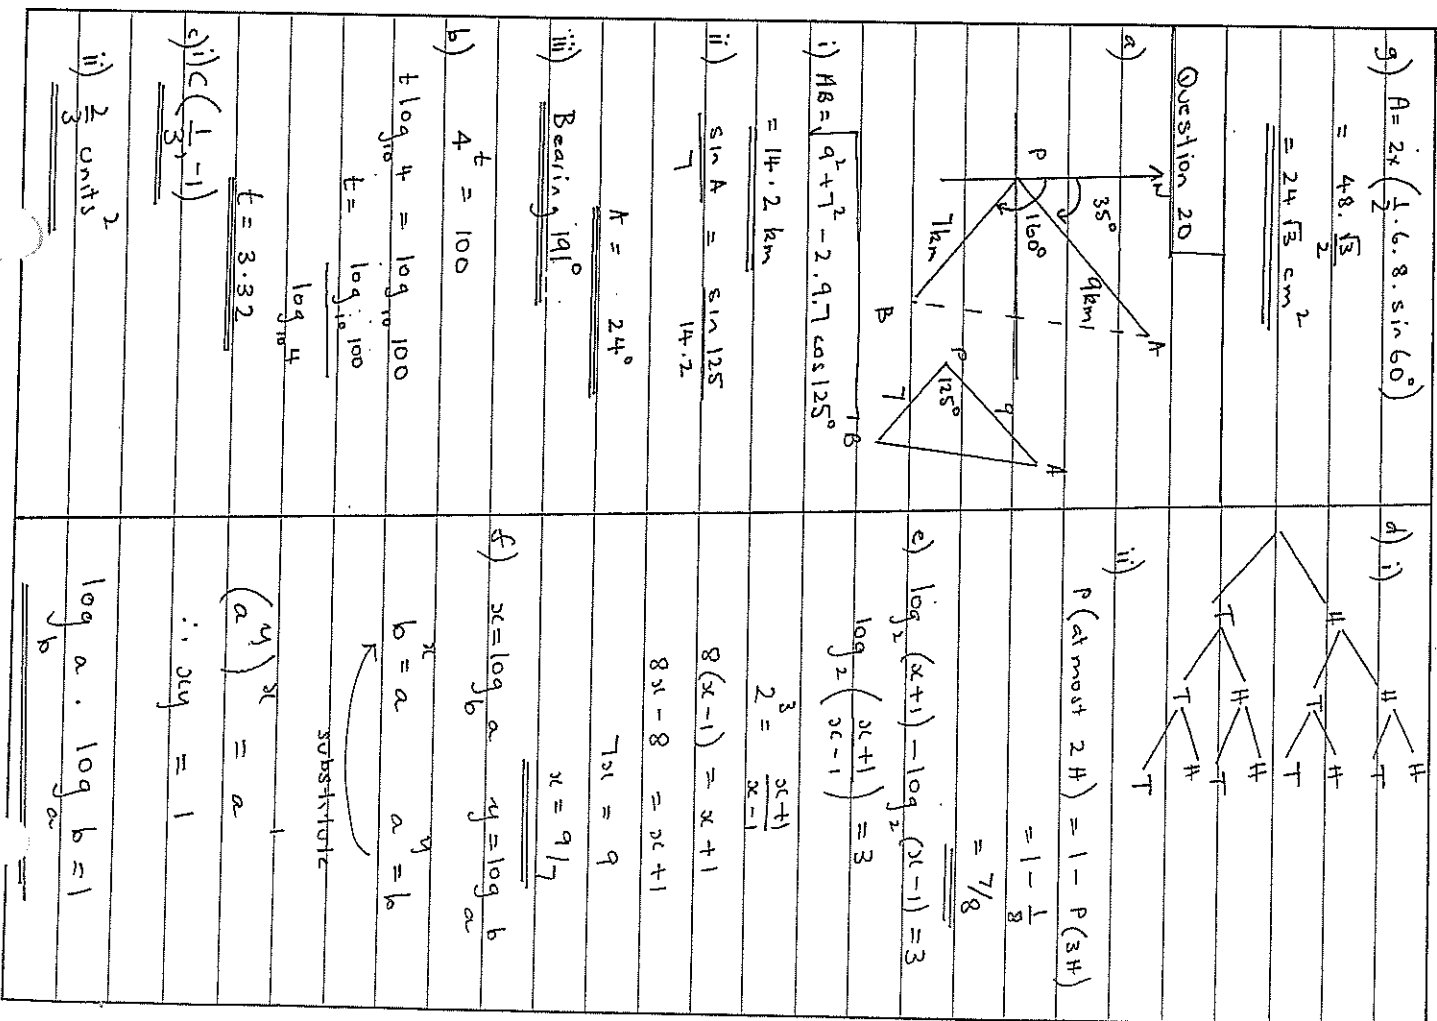 g) A = 2x (1/2 . 6 . 8 . sin 60°)
= 48 . √3/2
= 24 √3 cm²
Question 20
a)
N
35°
160°
P
9km
7km
A
B
P
125°
9
7
A
B
i) AB = √9² + 7² - 2.9.7 cos 125°
= 14.2 km
ii) sin A / 7 = sin 125 / 14.2
A = 24°
iii) Bearing 191°
b) 4^t = 100
t log₁₀ 4 = log₁₀ 100
t = log₁₀ 100 / log₁₀ 4
t = 3.32
c) i) C (1/3, -1)
ii) 2/3 units²
d) i)
H H H
T
T H
T
T H H
T
T H
T
ii) P(at most 2H) = 1 - P(3H)
= 1 - 1/8
= 7/8
e) log₂ (x+1) - log₂ (x-1) = 3
log₂ (x+1 / x-1) = 3
2³ = x+1 / x-1
8(x-1) = x+1
8x - 8 = x+1
7x = 9
x = 9/7
f) x = log_b a y = log_a b
b^x = a a^y = b
substitute
(a^y)^x = a^1
∴ xy = 1
log_b a . log_a b = 1